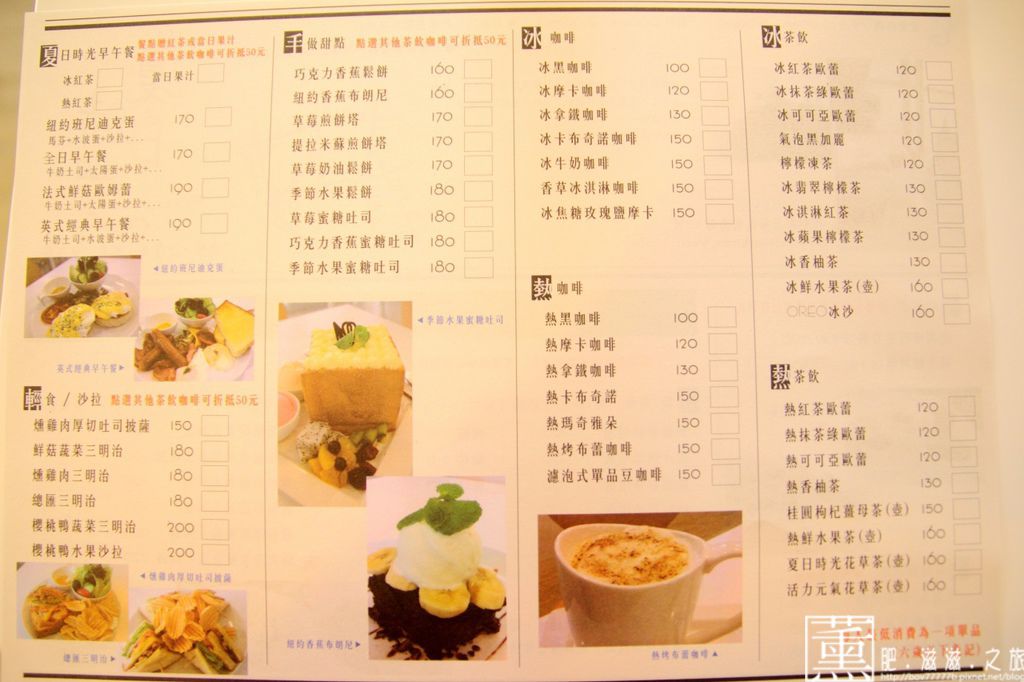 夏日時光早午餐
餐點贈紅茶或當日果汁
點選其他茶飲咖啡可折抵50元
冰紅茶 當日果汁
熱紅茶
紐約班尼迪克蛋 170
馬芬+水波蛋+沙拉+...
全日早午餐 170
牛奶土司+太陽蛋+沙拉+...
法式鮮菇歐姆蕾 190
牛奶土司+太陽蛋+沙拉+...
英式經典早午餐 190
牛奶土司+水波蛋+沙拉+...
◀紐約班尼迪克蛋
英式經典早午餐▶
輕食 / 沙拉 點選其他茶飲咖啡可折抵50元
燻雞肉厚切吐司披薩 150
鮮菇蔬菜三明治 180
燻雞肉三明治 180
總匯三明治 180
櫻桃鴨蔬菜三明治 200
櫻桃鴨水果沙拉 200
◀燻雞肉厚切吐司披薩
總匯三明治▶
手做甜點 點選其他茶飲咖啡可折抵50元
巧克力香蕉鬆餅 160
紐約香蕉布朗尼 160
草莓煎餅塔 170
提拉米蘇煎餅塔 170
草莓奶油鬆餅 170
季節水果鬆餅 180
草莓蜜糖吐司 180
巧克力香蕉蜜糖吐司 180
季節水果蜜糖吐司 180
◀季節水果蜜糖吐司
紐約香蕉布朗尼▶
冰咖啡
冰黑咖啡 100
冰摩卡咖啡 120
冰拿鐵咖啡 130
冰卡布奇諾咖啡 150
冰牛奶咖啡 150
香草冰淇淋咖啡 150
冰焦糖玫瑰鹽摩卡 150
熱咖啡
熱黑咖啡 100
熱摩卡咖啡 120
熱拿鐵咖啡 130
熱卡布奇諾 150
熱瑪奇雅朵 150
熱烤布蕾咖啡 150
濾泡式單品豆咖啡 150
熱烤布蕾咖啡▲
冰茶飲
冰紅茶歐蕾 120
冰抹茶綠歐蕾 120
冰可可亞歐蕾 120
氣泡黑加麗 120
檸檬凍茶 120
冰翡翠檸檬茶 130
冰淇淋紅茶 130
冰蘋果檸檬茶 130
冰香柚茶 130
冰鮮水果茶(壺) 160
OREO冰沙 160
熱茶飲
熱紅茶歐蕾 120
熱抹茶綠歐蕾 120
熱可可亞歐蕾 120
熱香柚茶 130
桂圓枸杞薑母茶(壺) 150
熱鮮水果茶(壺) 160
夏日時光花草茶(壺) 160
活力元氣花草茶(壺) 160
低消費為一項單品
薰 肥.滋滋.之旅